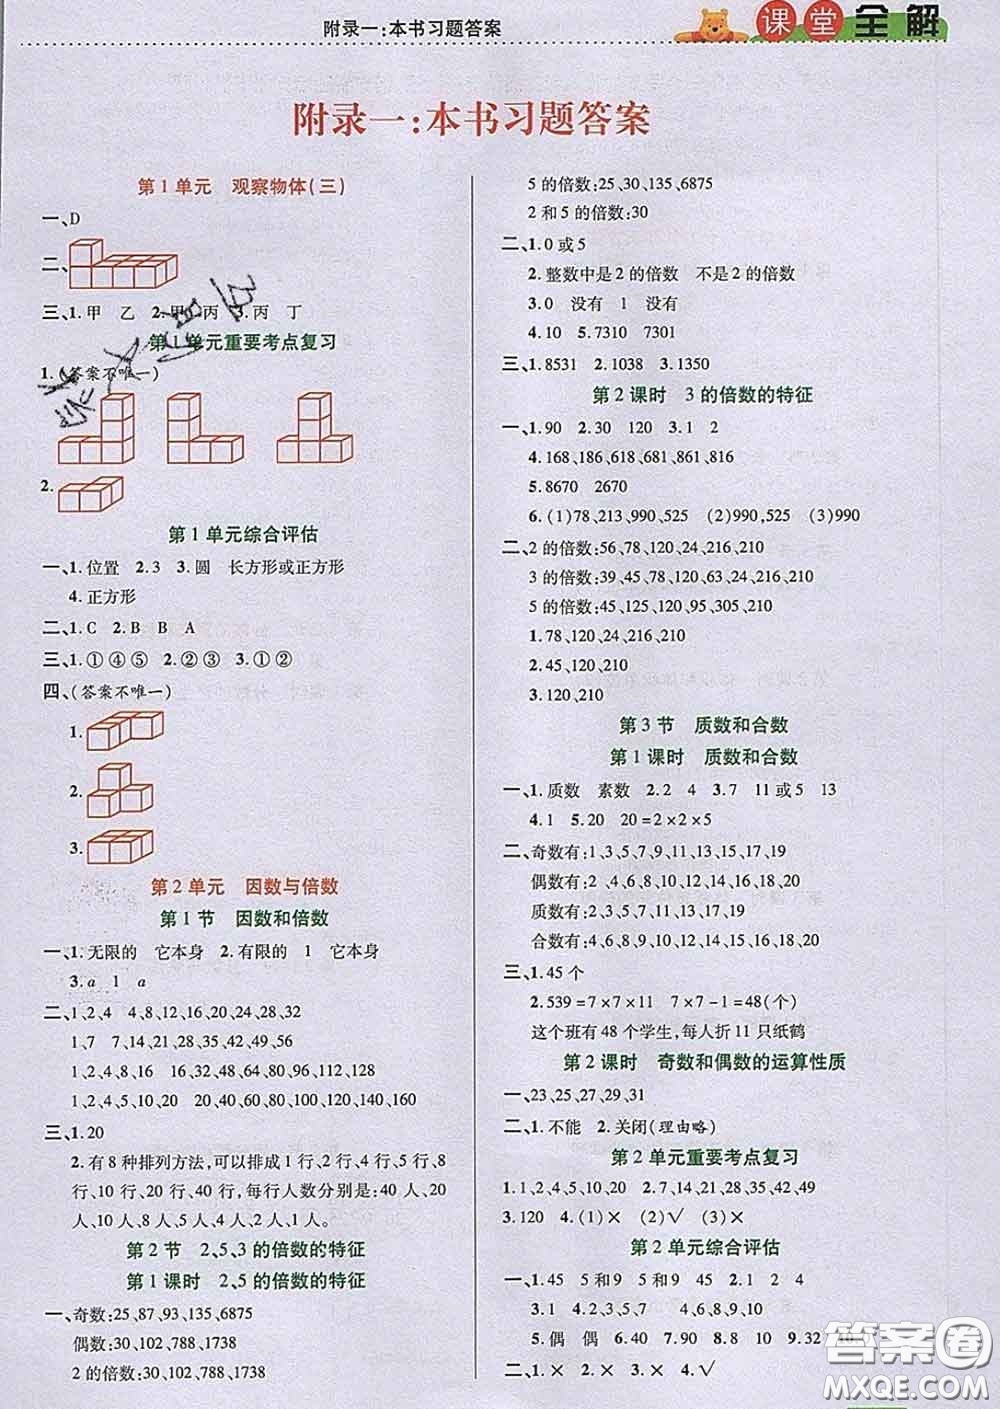 附录一:本书习题答案
课堂全解
附录一:本书习题答案
第1单元 观察物体(三)
一、D
二、
三、1.甲 乙 2.甲 丙 3.丙 丁
第1单元重要考点复习
1.(答案不唯一)
2.
第1单元综合评估
一、1.位置 2.3 3.圆 长方形或正方形
4.正方形
二、1.C 2.B B A
三、1.①④⑤ 2.②③ 3.①②
四、(答案不唯一)
1.
2.
3.
第2单元 因数与倍数
第1节 因数和倍数
一、1.无限的 它本身 2.有限的 1 它本身
3.a 1 a
二、1、2、4 4、8、12、16、20、24、28、32
1、7 7、14、21、28、35、42、49、56
1、2、4、5、10、20 20、40、60、80、100、120、140、160
三、1.20
2.有8种排列方法,可以排成1行、2行、4行、5行、8行、10行、20行、40行,每行人数分别是:40人、20人、10人、8人、5人、4人、2人、1人。
第2节 2、5、3的倍数的特征
第1课时 2、5的倍数的特征
一、奇数:25、87、93、135、6875
偶数:30、102、788、1738
2的倍数:30、102、788、1738
5的倍数:25、30、135、6875
2和5的倍数:30
二、1.0或5
2.整数中是2的倍数 不是2的倍数
3.0 没有 1 没有
4.10 5.7310 7301
三、1.8531 2.1038 3.1350
第2课时 3的倍数的特征
一、1.90 2.30 120 3.1 2
4.168、186、618、681、861、816
5.8670 2670
6.(1)78、213、990、525 (2)990、525 (3)990
二、2的倍数:56、78、120、24、216、210
3的倍数:39、45、78、120、24、216、210
5的倍数:45、125、120、95、305、210
1.78、120、24、216、210
2.45、120、210
3.120、210
第3节 质数和合数
第1课时 质数和合数
一、1.质数 素数 2.2 4 3.7 11或5 13
4.1 5.20 20=2×2×5
二、奇数有:1、3、5、7、9、11、13、15、17、19
偶数有:2、4、6、8、10、12、14、16、18、20
质数有:2、3、5、7、11、13、17、19
合数有:4、6、8、9、10、12、14、15、16、18、20
三、1.45个
2.539=7×7×11 7×7-1=48(个)
这个班有48个学生,每人折11只纸鹤
第2课时 奇数和偶数的运算性质
一、23、25、27、29、31
二、1.不能 2.关闭(理由略)
第2单元重要考点复习
1.1、2、4、5、10、20 2.7、14、21、28、35、42、49
3.120 4.(1)× (2)√ (3)×
第2单元综合评估
一、1.45 5和9 5和9 45 2.1 2 4
3.1 4.2、3、5、7 4、6、8、9、10
5.偶 偶 6.40 7.90 8.8 10 9.32
二、1.× 2.× 3.× 4.√
答案圈
MXQE.COM